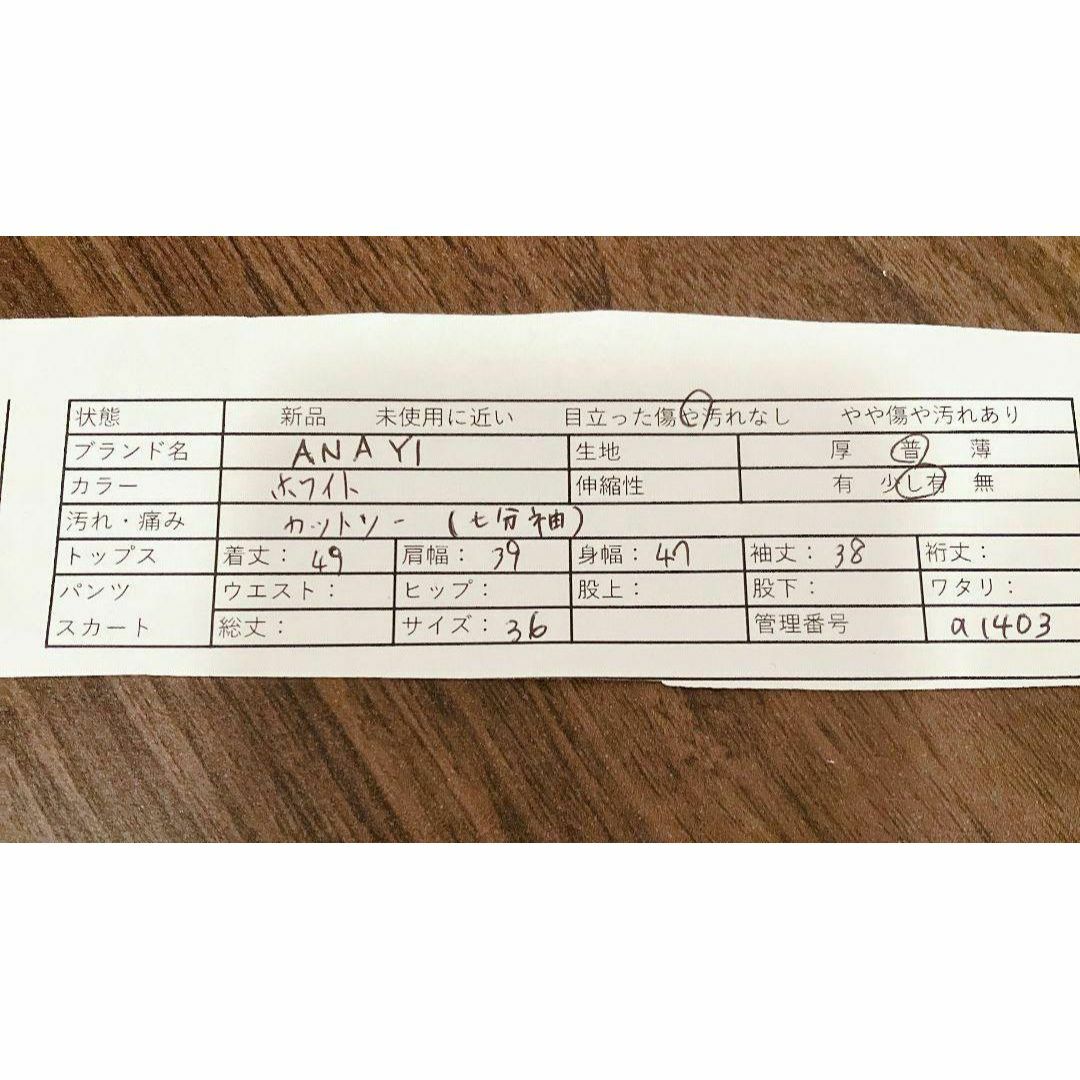 状態 新品 未使用に近い 目立った傷や汚れなし やや傷や汚れあり
ブランド名 ANAYI 生地 厚 普 薄
カラー ホワイト 伸縮性 有 少し有 無
汚れ・痛み カットソー (七分袖)
トップス 着丈： 49 肩幅： 39 身幅： 47 袖丈： 38 裄丈：
パンツ ウエスト： ヒップ： 股上： 股下： ワタリ：
スカート 総丈： サイズ： 36 管理番号 a1403